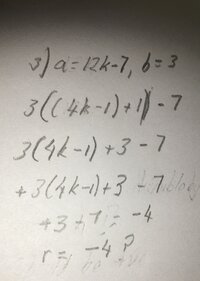 3) a=12k-7, b=3
3((4k-1)+1) - 7
3(4k-1)+3 - 7
+3(4k-1)+3 + 7
+3 + 7 = -4
r = -4 ?